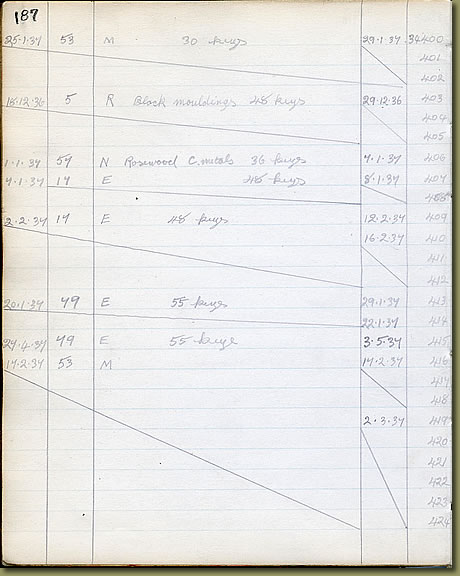 187
25·1·37 53 M 30 keys 29·1·37 34400
401
402
18·12·36 5 R Black mouldings 48 keys 29·12·36 403
404
405
1·1·37 57 N Rosewood C. metals 36 keys 7·1·37 406
7·1·37 17 E 48 keys 8·1·37 407
408
2·2·37 17 E 48 keys 12·2·37 409
16·2·37 410
411
412
20·1·37 49 E 55 keys 29·1·37 413
22·1·37 414
29·4·37 49 E 55 keys 3·5·37 415
17·2·37 53 M 17·2·37 416
417
418
2·3·37 419
420
421
422
423
424